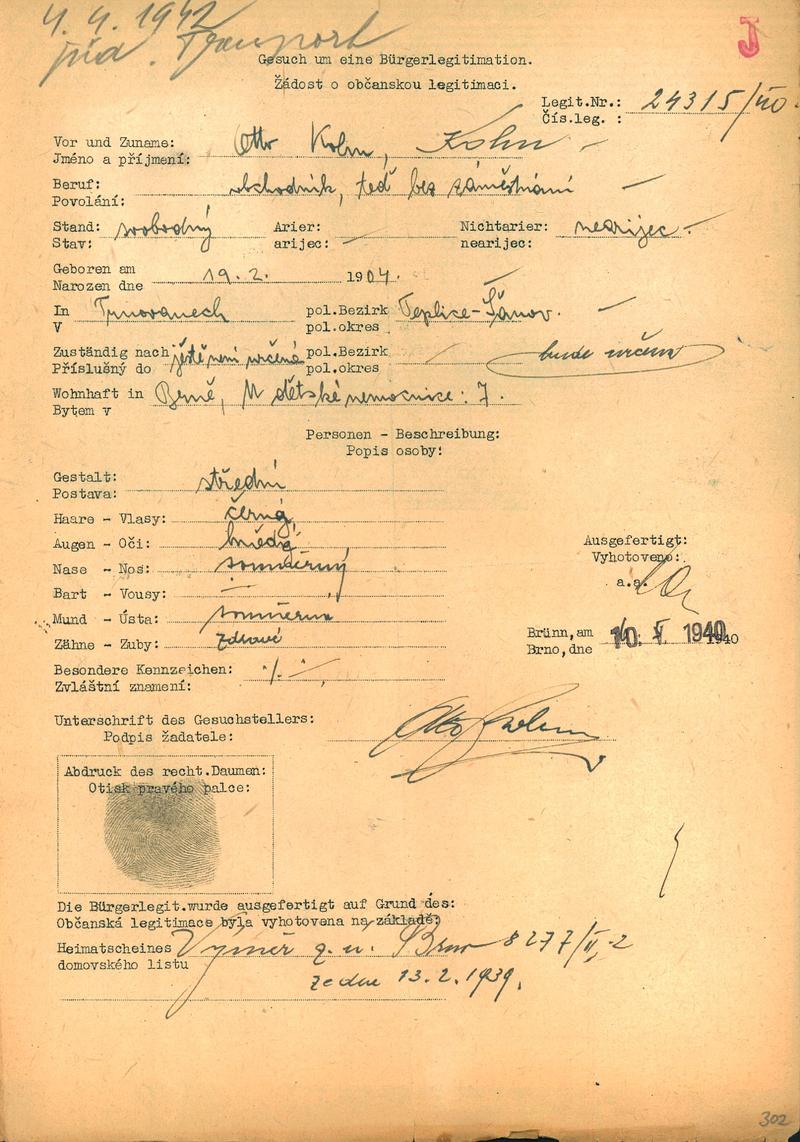 4. 4. 1942
J
jüd. Transport
Gesuch um eine Bürgerlegitimation.
Žádost o občanskou legitimaci.
Legit.Nr.: 24315/40
Čís.leg. :
Vor und Zuname: Otto Kohn, Kohn
Jméno a příjmení:
Beruf: obchodník, teď bez záměstnání
Povolání:
Stand: svobodný Arier: Nichtarier: nearijec
Stav: arijec: nearijec:
Geboren am
Narozen dne 19. 2. 1904.
In Trnovanech pol.Bezirk Teplice-Šanov.
V pol.okres
Zuständig nach ještě není určená pol.Bezirk bude určena
Příslušný do pol.okres
Wohnhaft in Brně, U dětské nemocnice: 7.
Bytem v
Personen - Beschreibung:
Popis osoby:
Gestalt: střední
Postava:
Haare - Vlasy: černé
Augen - Oči: hnědé
Ausgefertigt:
Vyhotoveno:
Nase - Nos: souměrný
a.a.
Bart - Vousy: —
Mund - Ústa: souměrna
Zähne - Zuby: zdravé
Brünn, am 10. V. 1940
Brno, dne 1940
Besondere Kennzeichen: ·/. -
Zvláštní znamení:
Unterschrift des Gesuchstellers:
Podpis žadatele: Otto Kohn
Abdruck des recht.Daumen:
Otisk pravého palce:
Die Bürgerlegit.wurde ausgefertigt auf Grund des:
Občanská legitimace byla vyhotovena na základě:
Heimatscheines Výměr z. ú. Brno 8277/II,-2
domovského listu
ze dne 13. 2. 1939.
302